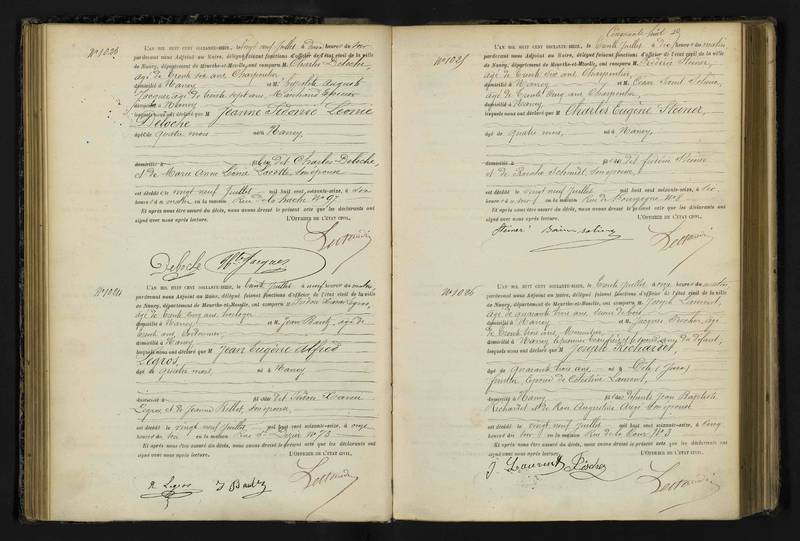 N° 1023
L'AN MIL HUIT CENT SOIXANTE-SEIZE, le vingt neuf Juillet à deux heures du soir
pardevant nous Adjoint au Maire, délégué faisant fonctions d'officier de l'état civil de la ville
de Nancy, département de Meurthe-et-Moselle, ont comparu M Charles Deloche,
âgé de trente six ans Charpentier
domicilié à Nancy et M Hippolyte Auguste
Jacques âgé de trente sept ans, Marchand Epicier
domicilié à Nancy
lesquels nous ont déclaré que M Jeanne Sidonie Léonie
Deloche
âgée de quatre mois née à Nancy,
domicilié à fille dit Charles Deloche,
et de Marie Anne Léonie Lacotte son épouse
est décédée le vingt neuf Juillet mil huit cent soixante-seize, à dix
heures du matin en la maison Rue de la N° 97
Et après nous être assuré du décès, nous avons dressé le présent acte que les déclarants ont
signé avec nous après lecture. L'OFFICIER DE L'ÉTAT CIVIL,
Deloche Hte Jacques
N° 1024
L'AN MIL HUIT CENT SOIXANTE-SEIZE, le trente Juillet à neuf heures du matin,
pardevant nous Adjoint au Maire, délégué faisant fonctions d'officier de l'état civil de la ville
de Nancy, département de Meurthe-et-Moselle, ont comparu M Isidore Legros,
âgé de trente cinq ans, horloger
domicilié à Nancy et M Jean Bautz, âgé de
trente ans, Cordonnier
domicilié à Nancy
lesquels nous ont déclaré que M Jean Eugène Alfred
Legros,
âgé de quatre mois, né à Nancy
domicilié à fils dit Isidore
Legros, et de Jeanne Rollet, son épouse,
est décédé le vingt neuf Juillet mil huit cent soixante-seize, à onze
heures du soir en la maison Rue St Dizier N° 73
Et après nous être assuré du décès, nous avons dressé le présent acte que les déclarants ont
signé avec nous après lecture. L'OFFICIER DE L'ÉTAT CIVIL,
Legros J Bautz
Cinquante huit
N° 1025
L'AN MIL HUIT CENT SOIXANTE-SEIZE, le trente Juillet à dix heures du matin
pardevant nous Adjoint au Maire, délégué faisant fonctions d'officier de l'état civil de la ville
de Nancy, département de Meurthe-et-Moselle, ont comparu M Frédéric Steiner,
âgé de trente six ans, Charpentier,
domicilié à Nancy et M
âgé de trente cinq ans, Charpentier
domicilié à Nancy
lesquels nous ont déclaré que M Charles Eugène Steiner,
âgé de quatre mois, né à Nancy,
domicilié à fils dit Frédéric Steiner
et de Rosalie Schmidt, son épouse,
est décédé le vingt neuf Juillet mil huit cent soixante-seize, à six
heures du soir en la maison Rue de Bourgogne N° 8
Et après nous être assuré du décès, nous avons dressé le présent acte que les déclarants ont
signé avec nous après lecture. L'OFFICIER DE L'ÉTAT CIVIL,
Steiner
N° 1026
L'AN MIL HUIT CENT SOIXANTE-SEIZE, le trente Juillet à onze heures du matin
pardevant nous Adjoint au Maire, délégué faisant fonctions d'officier de l'état civil de la ville
de Nancy, département de Meurthe-et-Moselle, ont comparu M Joseph Laurent,
âgé de quarante trois ans,
domicilié à Nancy et M Jacques Fischer, âgé
de trente trois ans, Menuisier,
domicilié à Nancy, le premier beau-frère du défunt,
lesquels nous ont déclaré que M Joseph Richardot,
âgé de quarante trois ans né à (Jura)
Epoux de Célestine Laurent,
domicilié à Nancy fils de défunts Jean Baptiste
Richardot et de Rose Augustine son épouse
est décédé le vingt neuf Juillet mil huit cent soixante-seize, à cinq
heures du soir en la maison Rue de la N° 3
Et après nous être assuré du décès, nous avons dressé le présent acte que les déclarants ont
signé avec nous après lecture. L'OFFICIER DE L'ÉTAT CIVIL,
J. Laurent Fischer